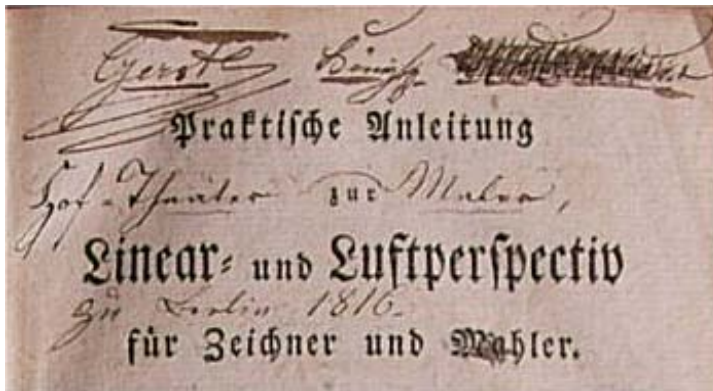 Gerst Königl.
Praktische Anleitung
Hof-Theater zur Maler,
Linear- und Luftperspectiv
zu Berlin 1816.
für Zeichner und Mahler.